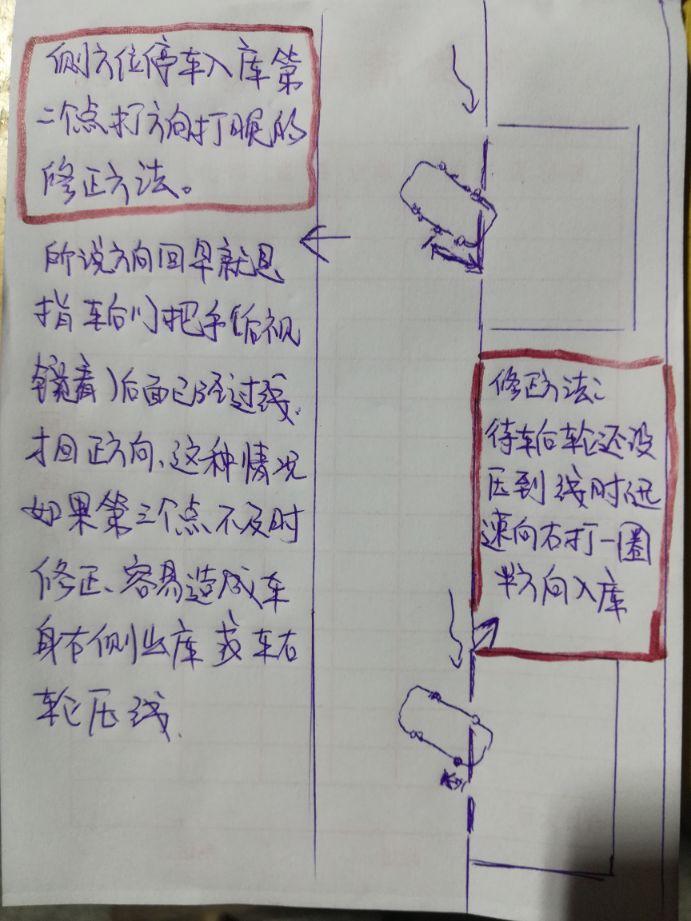 侧方位停车入库第
二个点打方向打晚的
修正方法。
所说方向回早就是
指车后门把手(后视
镜看)后面已经过线,
才回正方向、这种情况
如果第三个点不及时
修正、容易造成车
身右侧出库或车右
轮压线.
修正方法:
待车后轮还没
压到线时迅
速向右打一圈
半方向入库